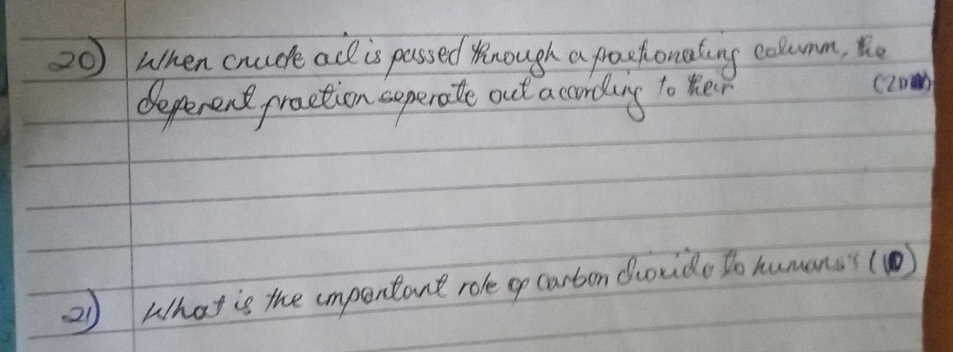 20) When crude oil is passed through a fractionating column, the
deperent fraction seperate out according to their
21) What is the important role of carbon dioxide to humans